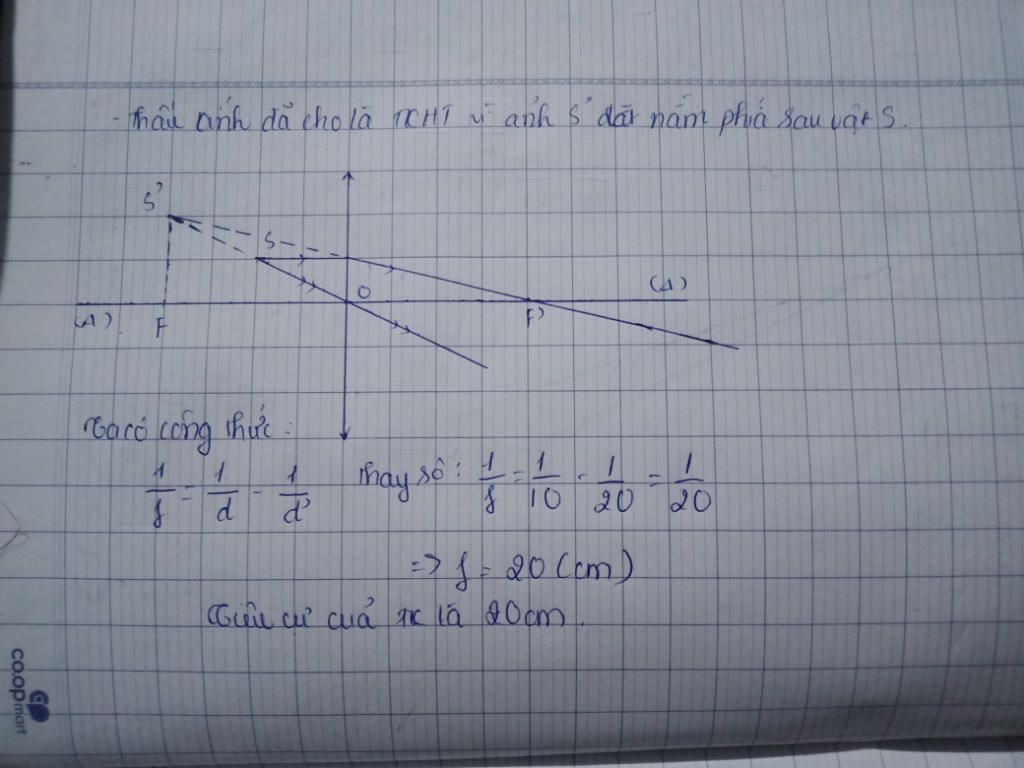 - Thấu kính đã cho là TKHT vì ảnh S' nằm phía sau vật S.
S'
S
O
(Δ)
(Δ)
F
F'
Ta có công thức:
1/f = 1/d - 1/d' Thay số: 1/f = 1/10 - 1/20 = 1/20
=> f = 20 (cm)
Tiêu cự của TK là 20cm.
co.opmart